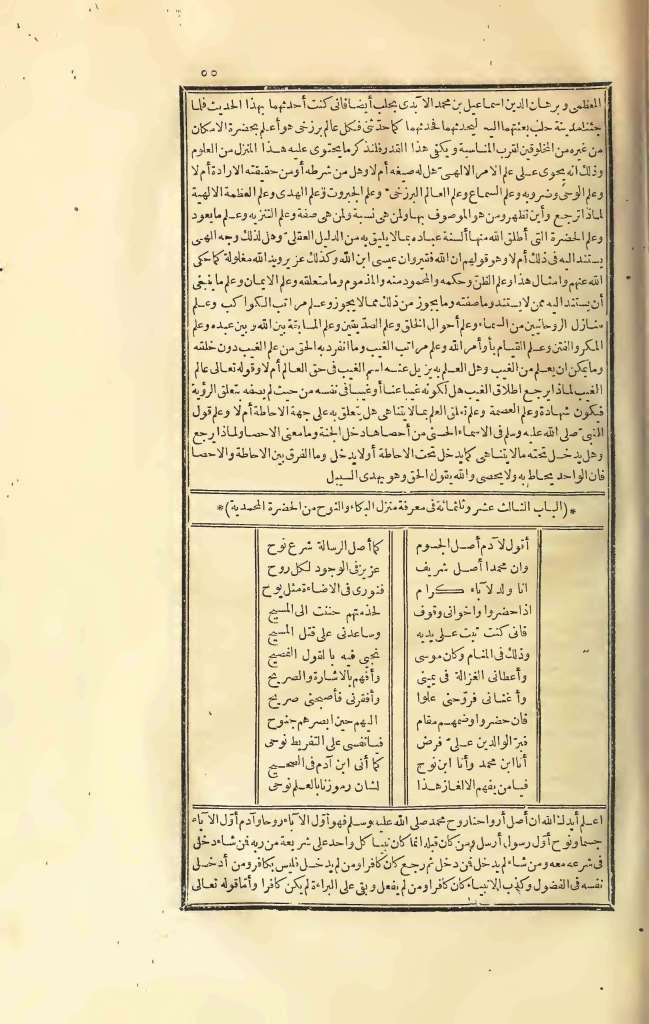 ٥٥
المعظمى وبرهان الدين اسماعيل بن محمد الآيدى بحلب أيضا فانى كنت أحدثهما بهذا الحديث فلما
جئنا مدينة حلب بعثتهما اليه ليحدثهما فحدثهما كما حدّثنى فكل عالم برزخى هو أعلم بحضرة الامكان
من غيره من المخلوقين لقرب المناسبة ويكفى هذا القدر فلنذكر ما يحتوى عليه هذا المنزل من العلوم
وذلك انه يحوى على علم الامر الالهى هل له صيغة أم لا وهل من شرطه أو من حقيقته الارادة أم لا
وعلم الوحى وضروبه وعلم السماع وعلم العالم البرزخى وعلم الجبروت وعلم الهدى وعلم العظمة الالهية
لماذا ترجع وأين تظهر ومن هو الموصوف بها ولمن هى نسبة ولمن هى صفة وعلم التنزيه وعلم ما يعود
وعلم الحضرة التى أطلق الله منها ألسنة عباده بما لا يليق به من الدليل العقلى وهل لذلك وجه الهى
يستند اليه فى ذلك أم لا وهو قولهم ان الله فقير وان عيسى ابن الله وكذلك عزير ويد الله مغلولة كما حكى
الله عنهم وامثال هذا وعلم الظنّ وحكمه والمحمود منه والمذموم وما متعلقه وعلم الايمان وعلم ما ينبغى
أن يستند اليه ممن لا يستند وما صفته وما يجوز من ذلك مما لا يجوز وعلم مراتب الكواكب وعلم
منازل الروحانيين من السماء وعلم أحوال الخلق وعلم الصدّيقين وعلم المسابقة بين الله وبين عبده وعلم
المكر والفتن وعلم القيام بأوامر الله وعلم مراتب الغيب وما انفرد به الحق من علم الغيب دون خلقه
وما يمكن ان يعلم من الغيب وهل العلم به يزيل عنه اسم الغيب فى حق العالم أم لا وقوله تعالى عالم
الغيب لماذا يرجع اطلاق الغيب هل لكونه غيبا عنا أو غيبا فى نفسه من حيث لم يصفه بتعلق الرؤية
فيكون شهادة وعلم العصمة وعلم تعلق العلم بما لا يتناهى هل يتعلق به على جهة الاحاطة أم لا وعلم قول
النبىّ صلى الله عليه وسلم فى الاسماء الحسنى من أحصاها دخل الجنة وما معنى الاحصا ولماذا يرجع
وهل يدخل تحته ما لا يتناهى كما يدخل تحت الاحاطة أولا يدخل وما الفرق بين الاحاطة والاحصا
فان الواحد يحاط به ولا يحصى والله يقول الحق وهو يهدى السبيل
*(الباب الثالث عشر وثلثمائة فى معرفة منزل البكاء والنوح من الحضرة المحمدية)*
أقول لآدم أصل الجسوم كما أصل الرسالة شرع نوح
وان محمدا أصل شريف عزيز فى الوجود لكل روح
انا ولد لآباء كرام فنورى فى الاضاءة مثل يوح
اذا حضروا واخوانى وقوف لخدمتهم حننت الى المسيح
فانى كنت تبت على يديه وساعدنى على قتل المسيح
وذلك فى المنام وكان موسى نجيى فيه بالقول الفصيح
وأعطانى الغزالة فى يمينى وأفهم بالاشارة والصريح
وأغشانى فروّحنى علوا وأفقرنى فأصبحنى صريح
فان حضروا وضمهم مقام اليهم حين ابصرهم جنوح
فبرّ الوالدين علىّ فرض فيا نفسى على التفريط نوحى
أنا ابن محمد وأنا ابن نوح كما أنى ابن آدم فى الصحيح
فيا من يفهم الالغاز هذا لسان رموزنا بالعلم نوحى
اعلم أيدك الله ان أصل أرواحنا روح محمد صلى الله عليه وسلم فهو أوّل الآباء روحا وآدم أوّل الآباء
جسما ونوح أوّل رسول أرسل ومن كان قبله انما كان نبيا كل واحد على شريعة من ربه فمن شاء دخل
فى شرعه معه ومن شاء لم يدخل فمن دخل ثم رجع كان كافرا ومن لم يدخل فليس بكافر ومن أدخل
نفسه فى الفضول وكذب الانبياء كان كافرا ومن لم يفعل وبقى على البراءة لم يكن كافرا وأما قوله تعالى